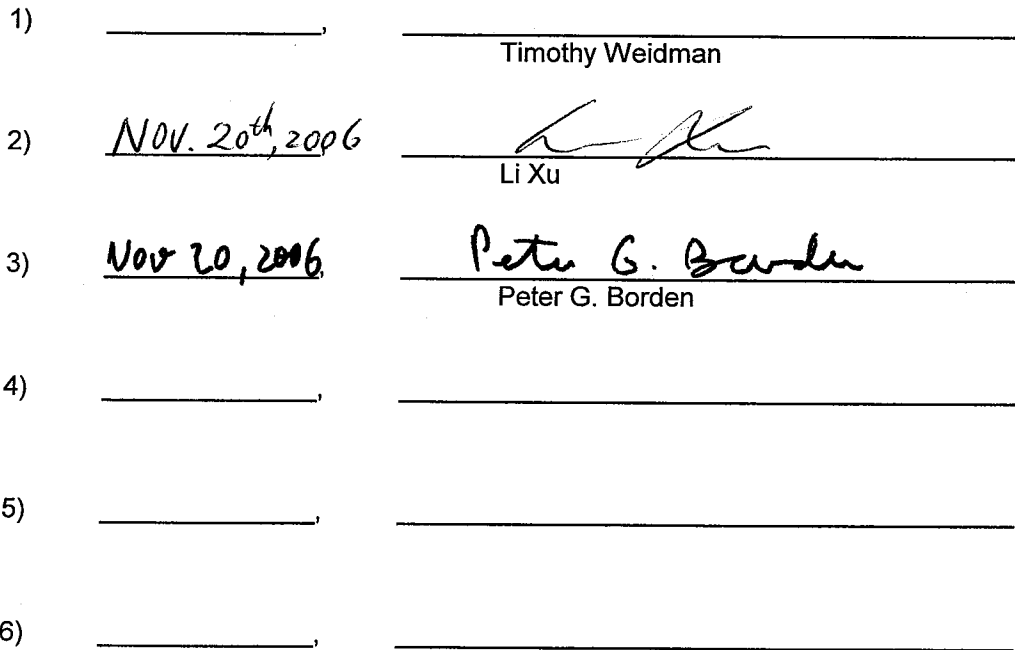 1) ____________, ____________
Timothy Weidman
2) Nov. 20th, 2006
Li Xu
3) Nov 20, 2006, Peter G. Borden
Peter G. Borden
4) ____________, ____________
5) ____________, ____________
6) ____________, ____________